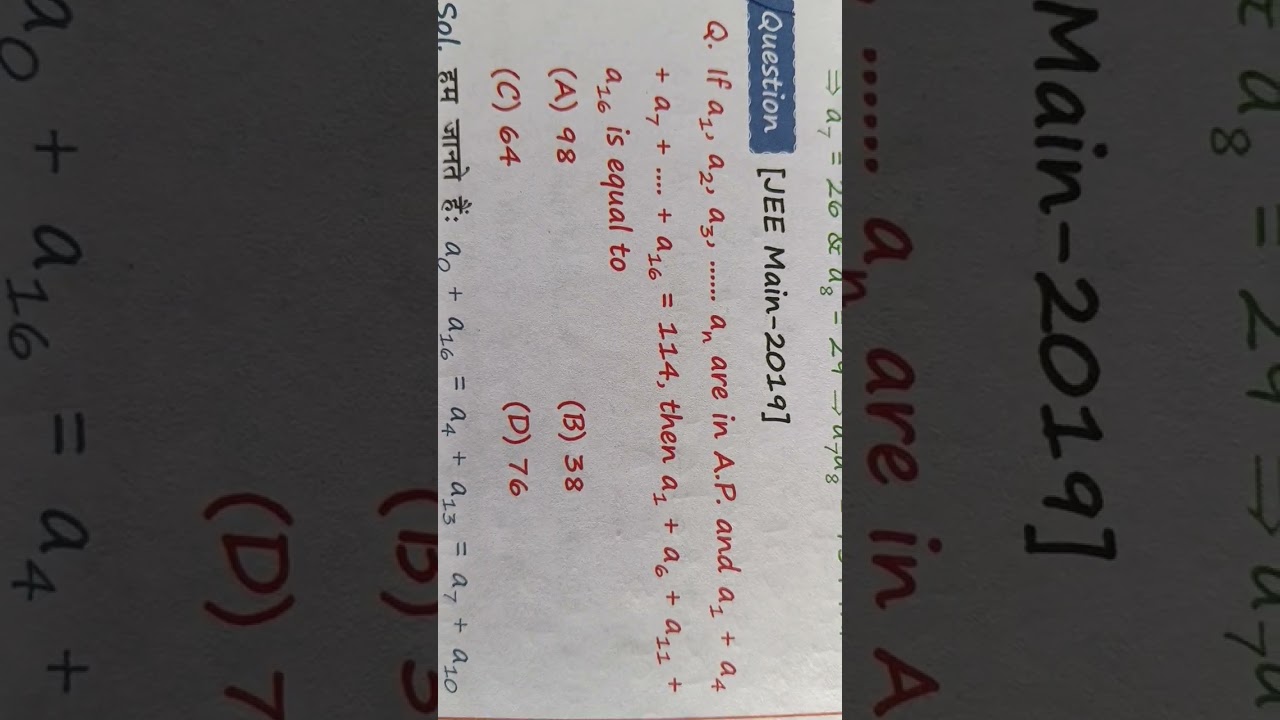 ⇒ a₇ = 26 & a₈ = 29 ⇒ a₇a₈
Question [JEE Main-2019]
Q. If a₁, a₂, a₃, ...... aₙ are in A.P. and a₁ + a₄
+ a₇ + .... + a₁₆ = 114, then a₁ + a₆ + a₁₁ +
a₁₆ is equal to
(A) 98 (B) 38
(C) 64 (D) 76
Sol. हम जानते हैं: a₀ + a₁₆ = a₄ + a₁₃ = a₇ + a₁₀